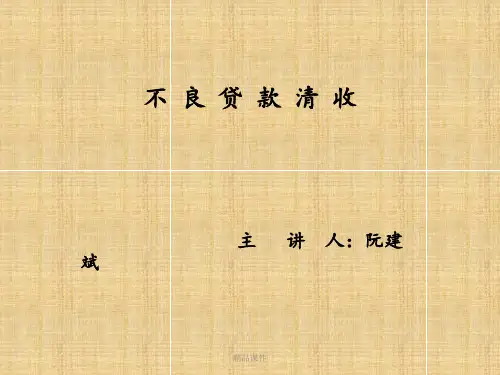 不 良 贷 款 清 收
主 讲 人：阮建
斌
精品课件